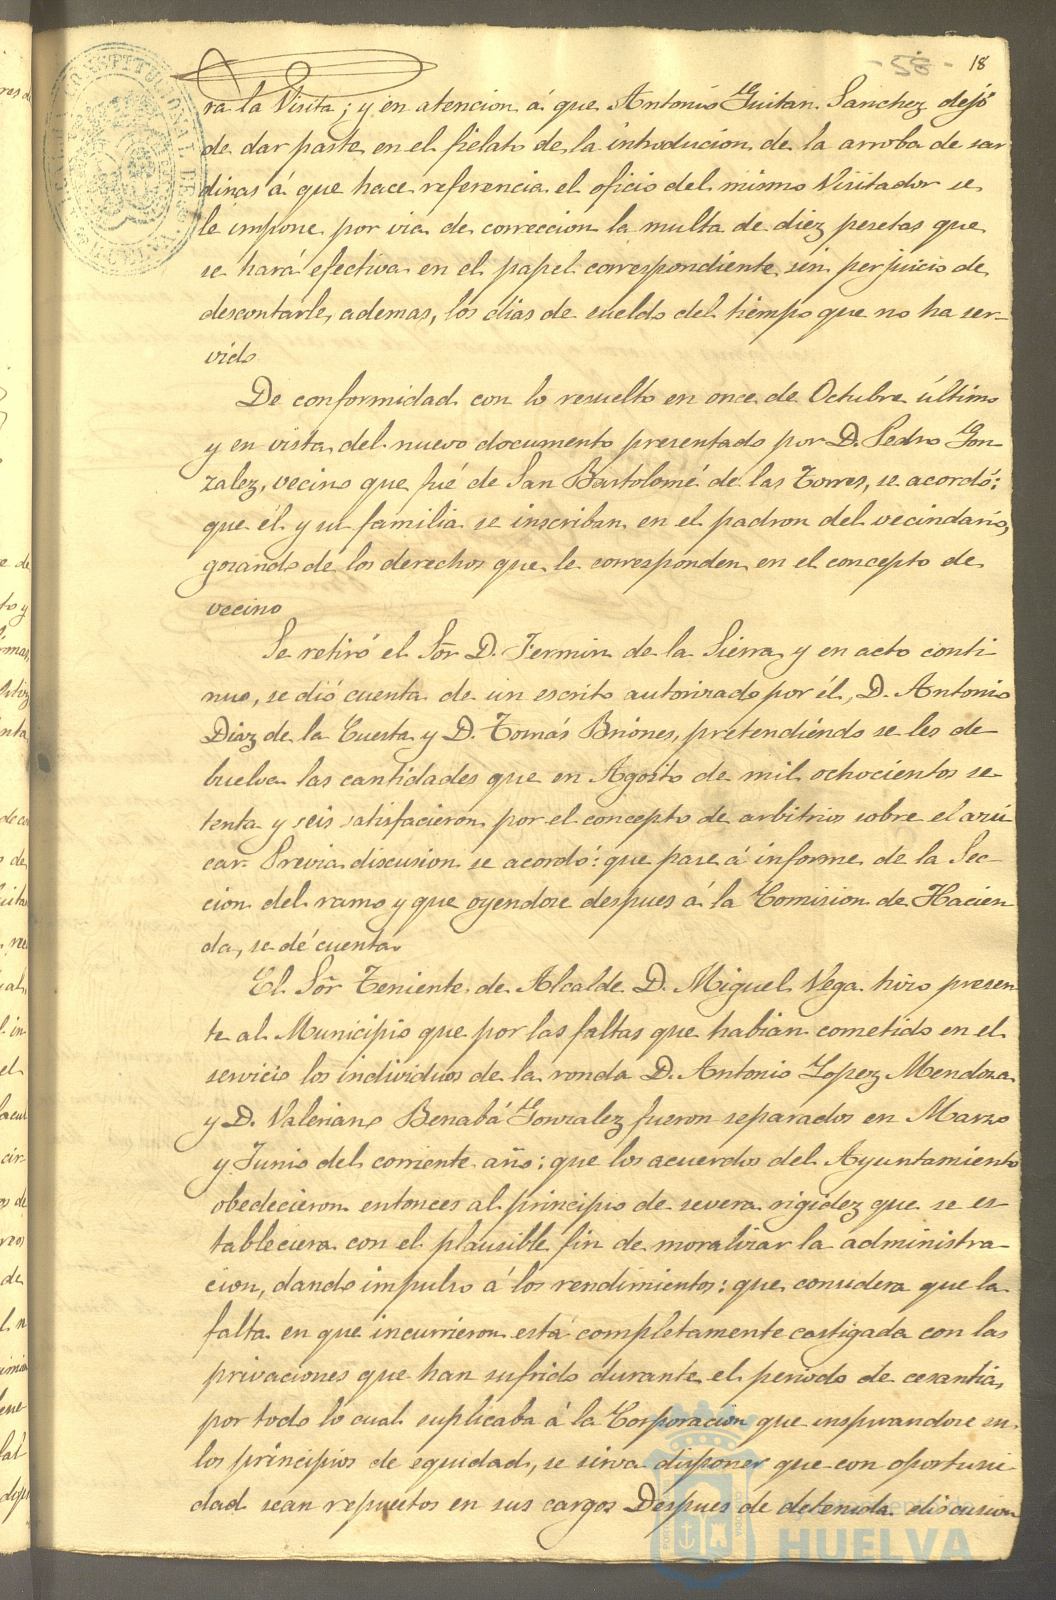 - 58 - 18
ra la Visita; y en atencion á que Antonio Guitan Sanchez dejó
de dar parte en el fielato de la introducion de la arroba de sar
dinas á que hace referencia el oficio del mismo Visitador se
le impone por via de correccion la multa de diez pesetas que
se hará efectiva en el papel correspondiente sin perjuicio de
descontarle, ademas, los dias de sueldo del tiempo que no ha ser-
vido
De conformidad con lo resuelto en once de Octubre último
y en vista del nuevo documento presentado por D. Pedro Gon
zalez, vecino que fué de San Bartolomé de las Torres, se acordó:
que él y su familia se inscriban en el padron del vecindario,
gozando de los derechos que le corresponden en el concepto de
vecino
Se retiró el Sor D. Fermin de la Sierra y en acto conti
nuo, se dió cuenta de un escrito autorizado por él, D. Antonio
Diaz de la Cuesta y D. Tomás Briones, pretendiendo se les de
buelva las cantidades que en Agosto de mil ochocientos se-
tenta y seis satisfacieron por el concepto de arbitrios sobre el azú
car. Previa discusion se acordó: que pase á informe de la Sec-
cion del ramo y que oyendose despues á la Comision de Hacien
da, se dé cuenta
El Sor Teniente de Alcalde D. Miguel Vega hizo presen-
te al Municipio que por las faltas que habian cometido en el
servicio los individuos de la ronda D. Antonio Lopez Mendoza
y D. Valeriano Benabá Gonzalez fueron separados en Marzo
y Junio del corriente año: que los acuerdos del Ayuntamiento
obedecieron entonces al principio de severa rigidez que se es-
tableciera con el plausible fin de moralizar la administra-
cion, dando impulso á los rendimientos: que considera que la
falta en que incurrieron está completamente castigada con las
privaciones que han sufrido durante el periodo de cesantia,
por todo lo cual suplicaba á la Corporacion que inspirandose en
los principios de equidad, se sirva disponer que con oportuni
dad sean repuestos en sus cargos Despues de detenida discusion
Ayuntamiento de
HUELVA